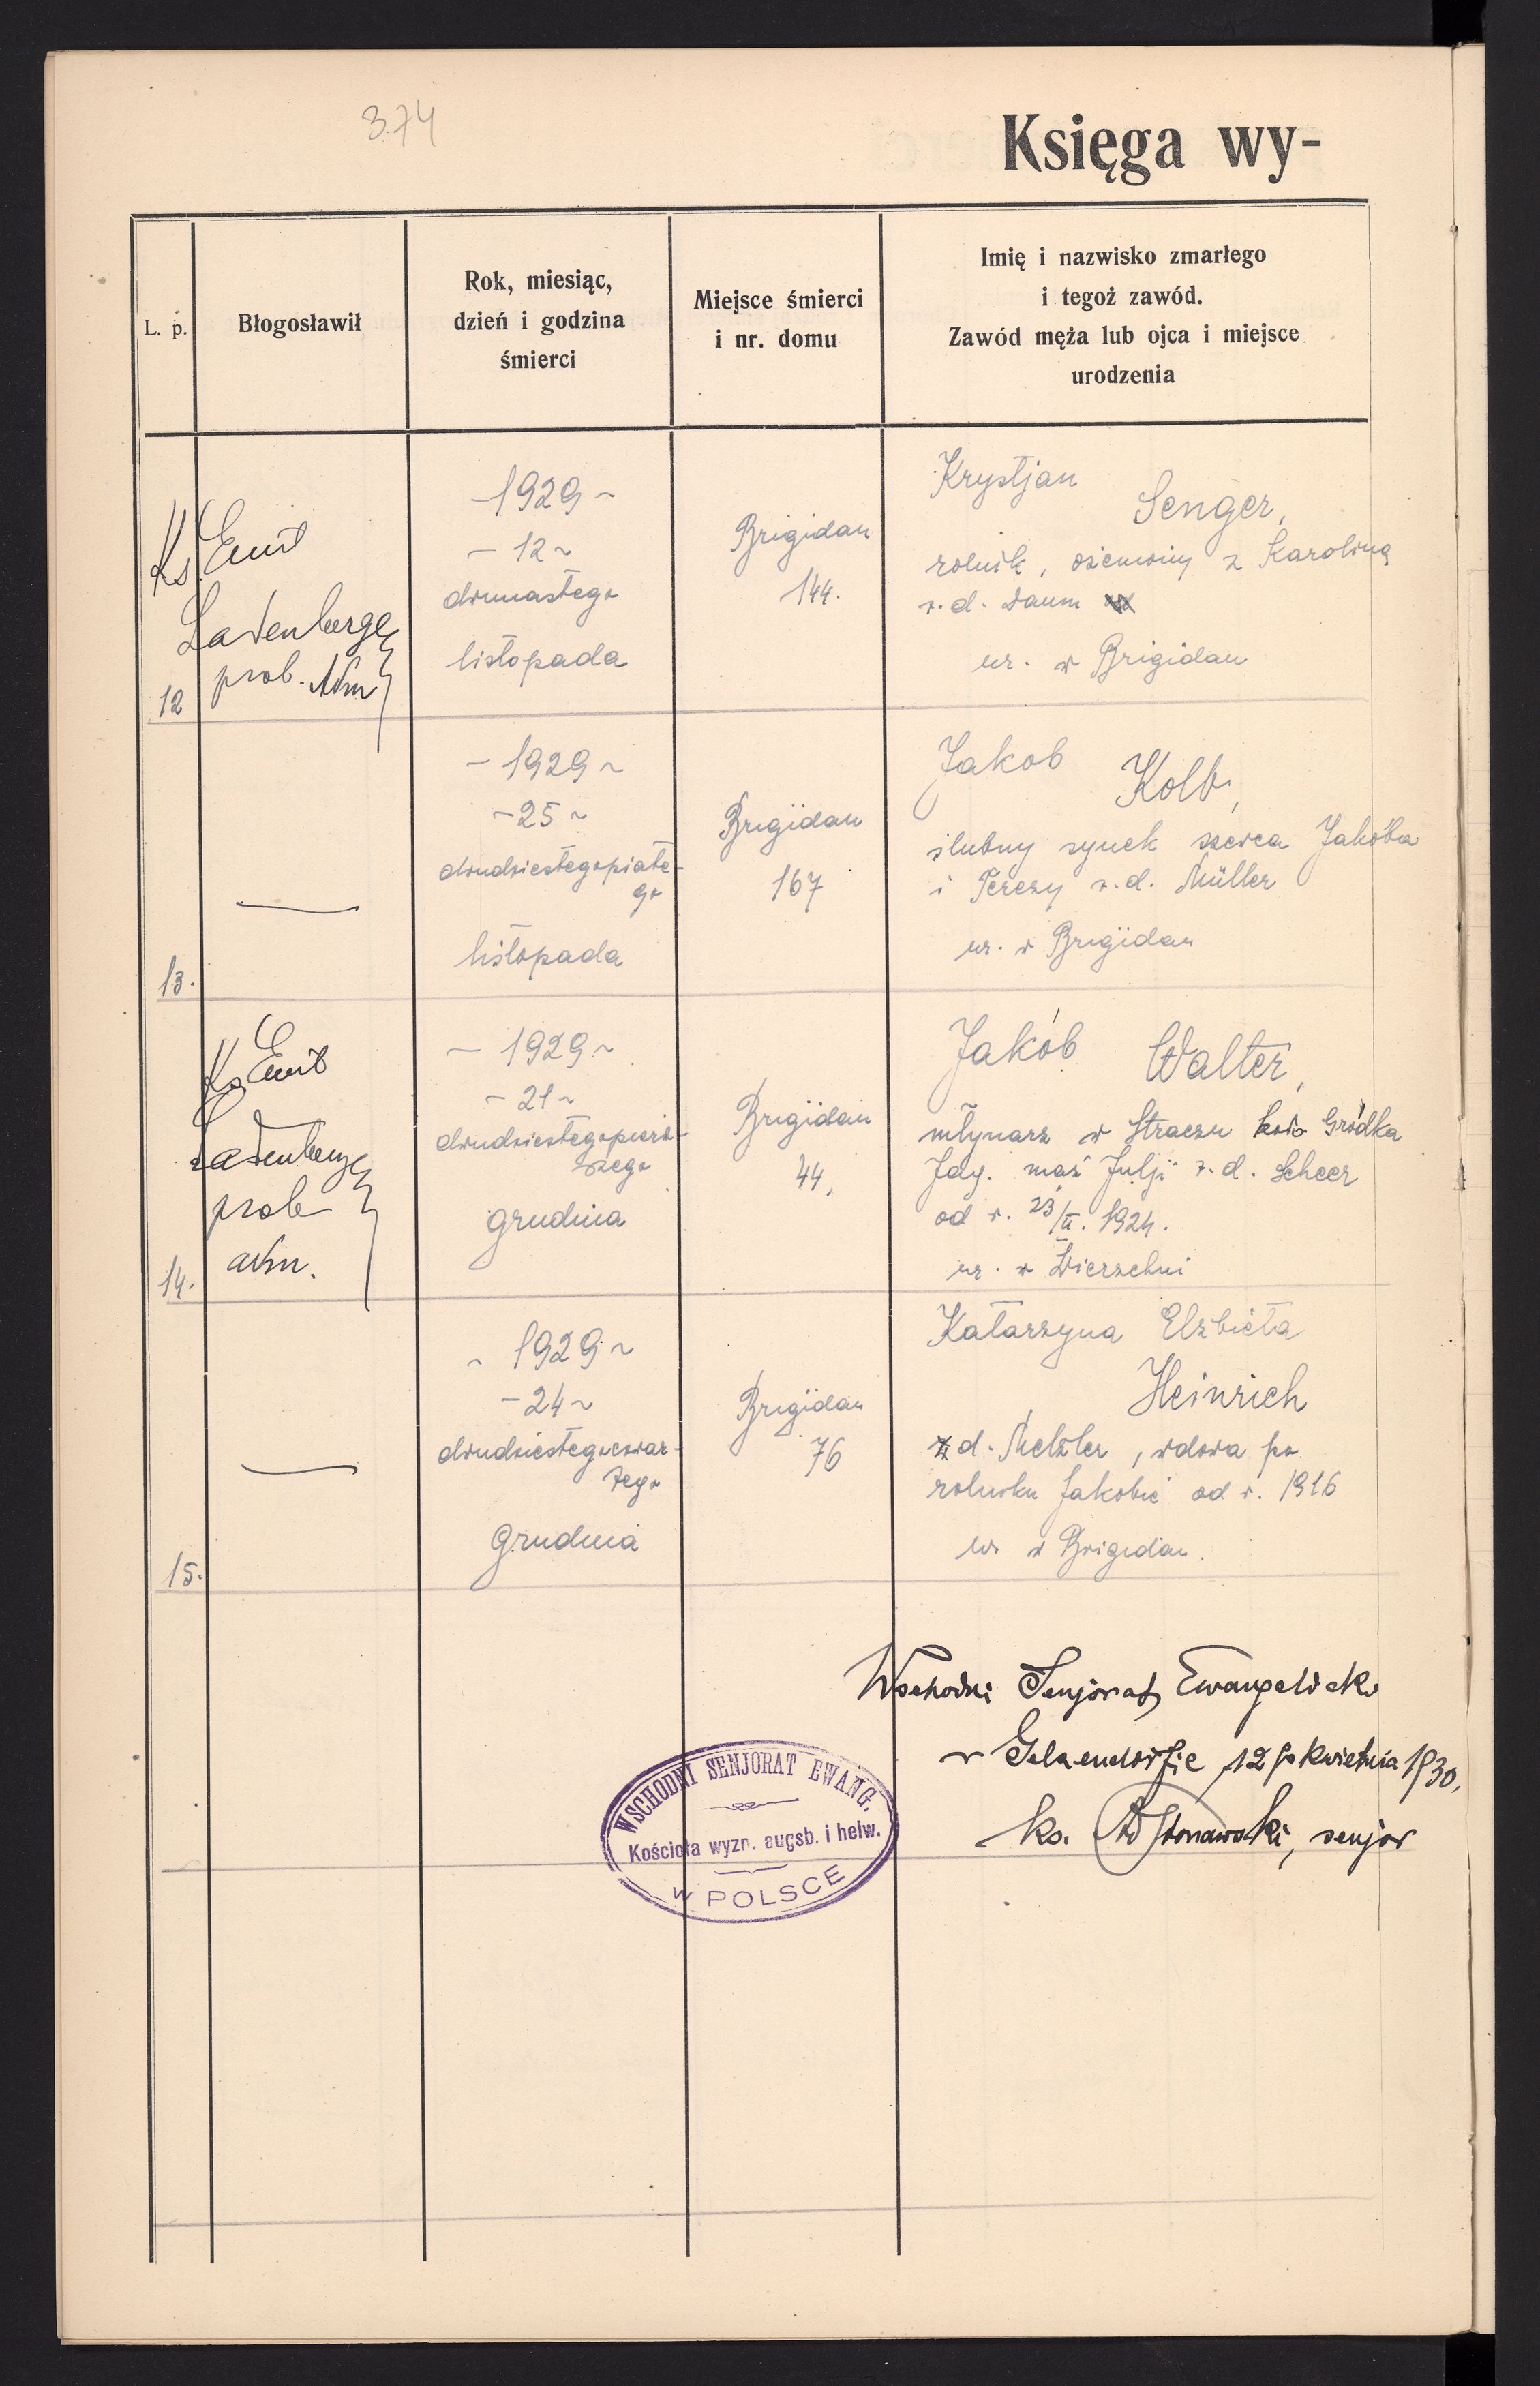 3.74
Księga wy-
L. p.
Błogosławił
Rok, miesiąc,
dzień i godzina
śmierci
Miejsce śmierci
i nr. domu
Imię i nazwisko zmarłego
i tegoż zawód.
Zawód męża lub ojca i miejsce
urodzenia
12
Ks. Emil
Ladenberger
prob. Adm
- 1929 ~
- 12 ~
dwunastego
listopada
Brigidau
144.
Krystjan
Senger,
rolnik, ożeniony z Karoliną
r. d. Daum
ur. w Brigidau
13.
—
- 1929 ~
- 25 ~
dwudziestegopiąte-
go
listopada
Brigidau
167
Jakob
Kolb,
ślubny synek szewca Jakóba
i Terezy r. d. Müller
ur. w Brigidau
14.
Ks Emil
Ladenberger
prob
adm.
- 1929 ~
- 21 ~
dwudziestegopierw-
szego
grudnia
Brigidau
44,
Jakób Walter,
młynarz w Straczu koło Gródka
Jag. mąż Julji r. d. Scheer
od r. 23/II. 1924.
ur. w Wierzchni
15.
—
- 1929 ~
- 24 ~
dwudziestegoczwar-
tego
Grudnia
Brigidau
76
Katarzyna Elżbieta
Heinrich
r. d. Metzler, wdowa po
rolniku Jakobie od r. 1916
ur w Brigidau.
Wschodni Senjorat Ewangelicki
w Gelsendorfie 12 go kwietnia 1930,
ks. Stonawski, senjor
WSCHODNI SENJORAT EWANG.
Kościoła wyzn. augsb. i helw.
W POLSCE